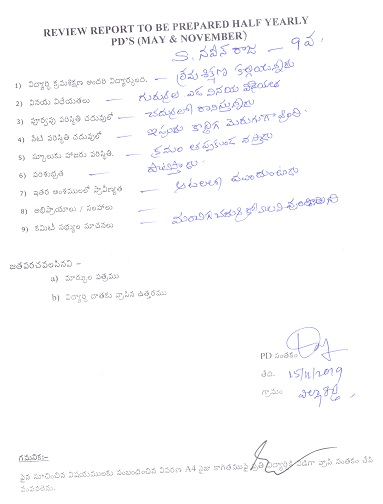 REVIEW REPORT TO BE PREPARED HALF YEARLY
PD'S (MAY & NOVEMBER)
S. నవీన్ రాజ — 9వ.
1) విద్యార్థి క్రమశిక్షణ అందరి విద్యార్థులది. — క్రమశిక్షణ కల్గియున్నాడు
2) వినయ విధేయతలు — గురువుల ఎడ వినయ విధేయత
3) పూర్వపు పరిస్థితి చదువులో — చదువులో
4) నేటి పరిస్థితి చదువులో — ఇప్పుడు కొద్దిగ మెరుగుగా
5) స్కూలుకు హాజరు పరిస్థితి. — క్రమం తప్పకుండ వస్తాడు
6) పరిశుభ్రత — పాటిస్తాడు.
7) ఇతర అంశములలో ప్రావీణ్యత — ఆటలలో
8) అభిప్రాయాలు / సలహాలు —
9) కమిటీ సభ్యుల సూచనలు —
జతపరచవలసినవి :-
a) మార్కుల పత్రము
b) విద్యార్థి దాతకు వ్రాసిన ఉత్తరములు
PD సంతకం
తేది. 15/11/2019
గ్రామం
గమనిక:-
పైన సూచించిన విషయములకు సంబంధించిన వివరణ A4 సైజు కాగితముపై ప్రతి విద్యార్థికి విడిగా వ్రాసి సంతకం చేసి
పంపవలెను.